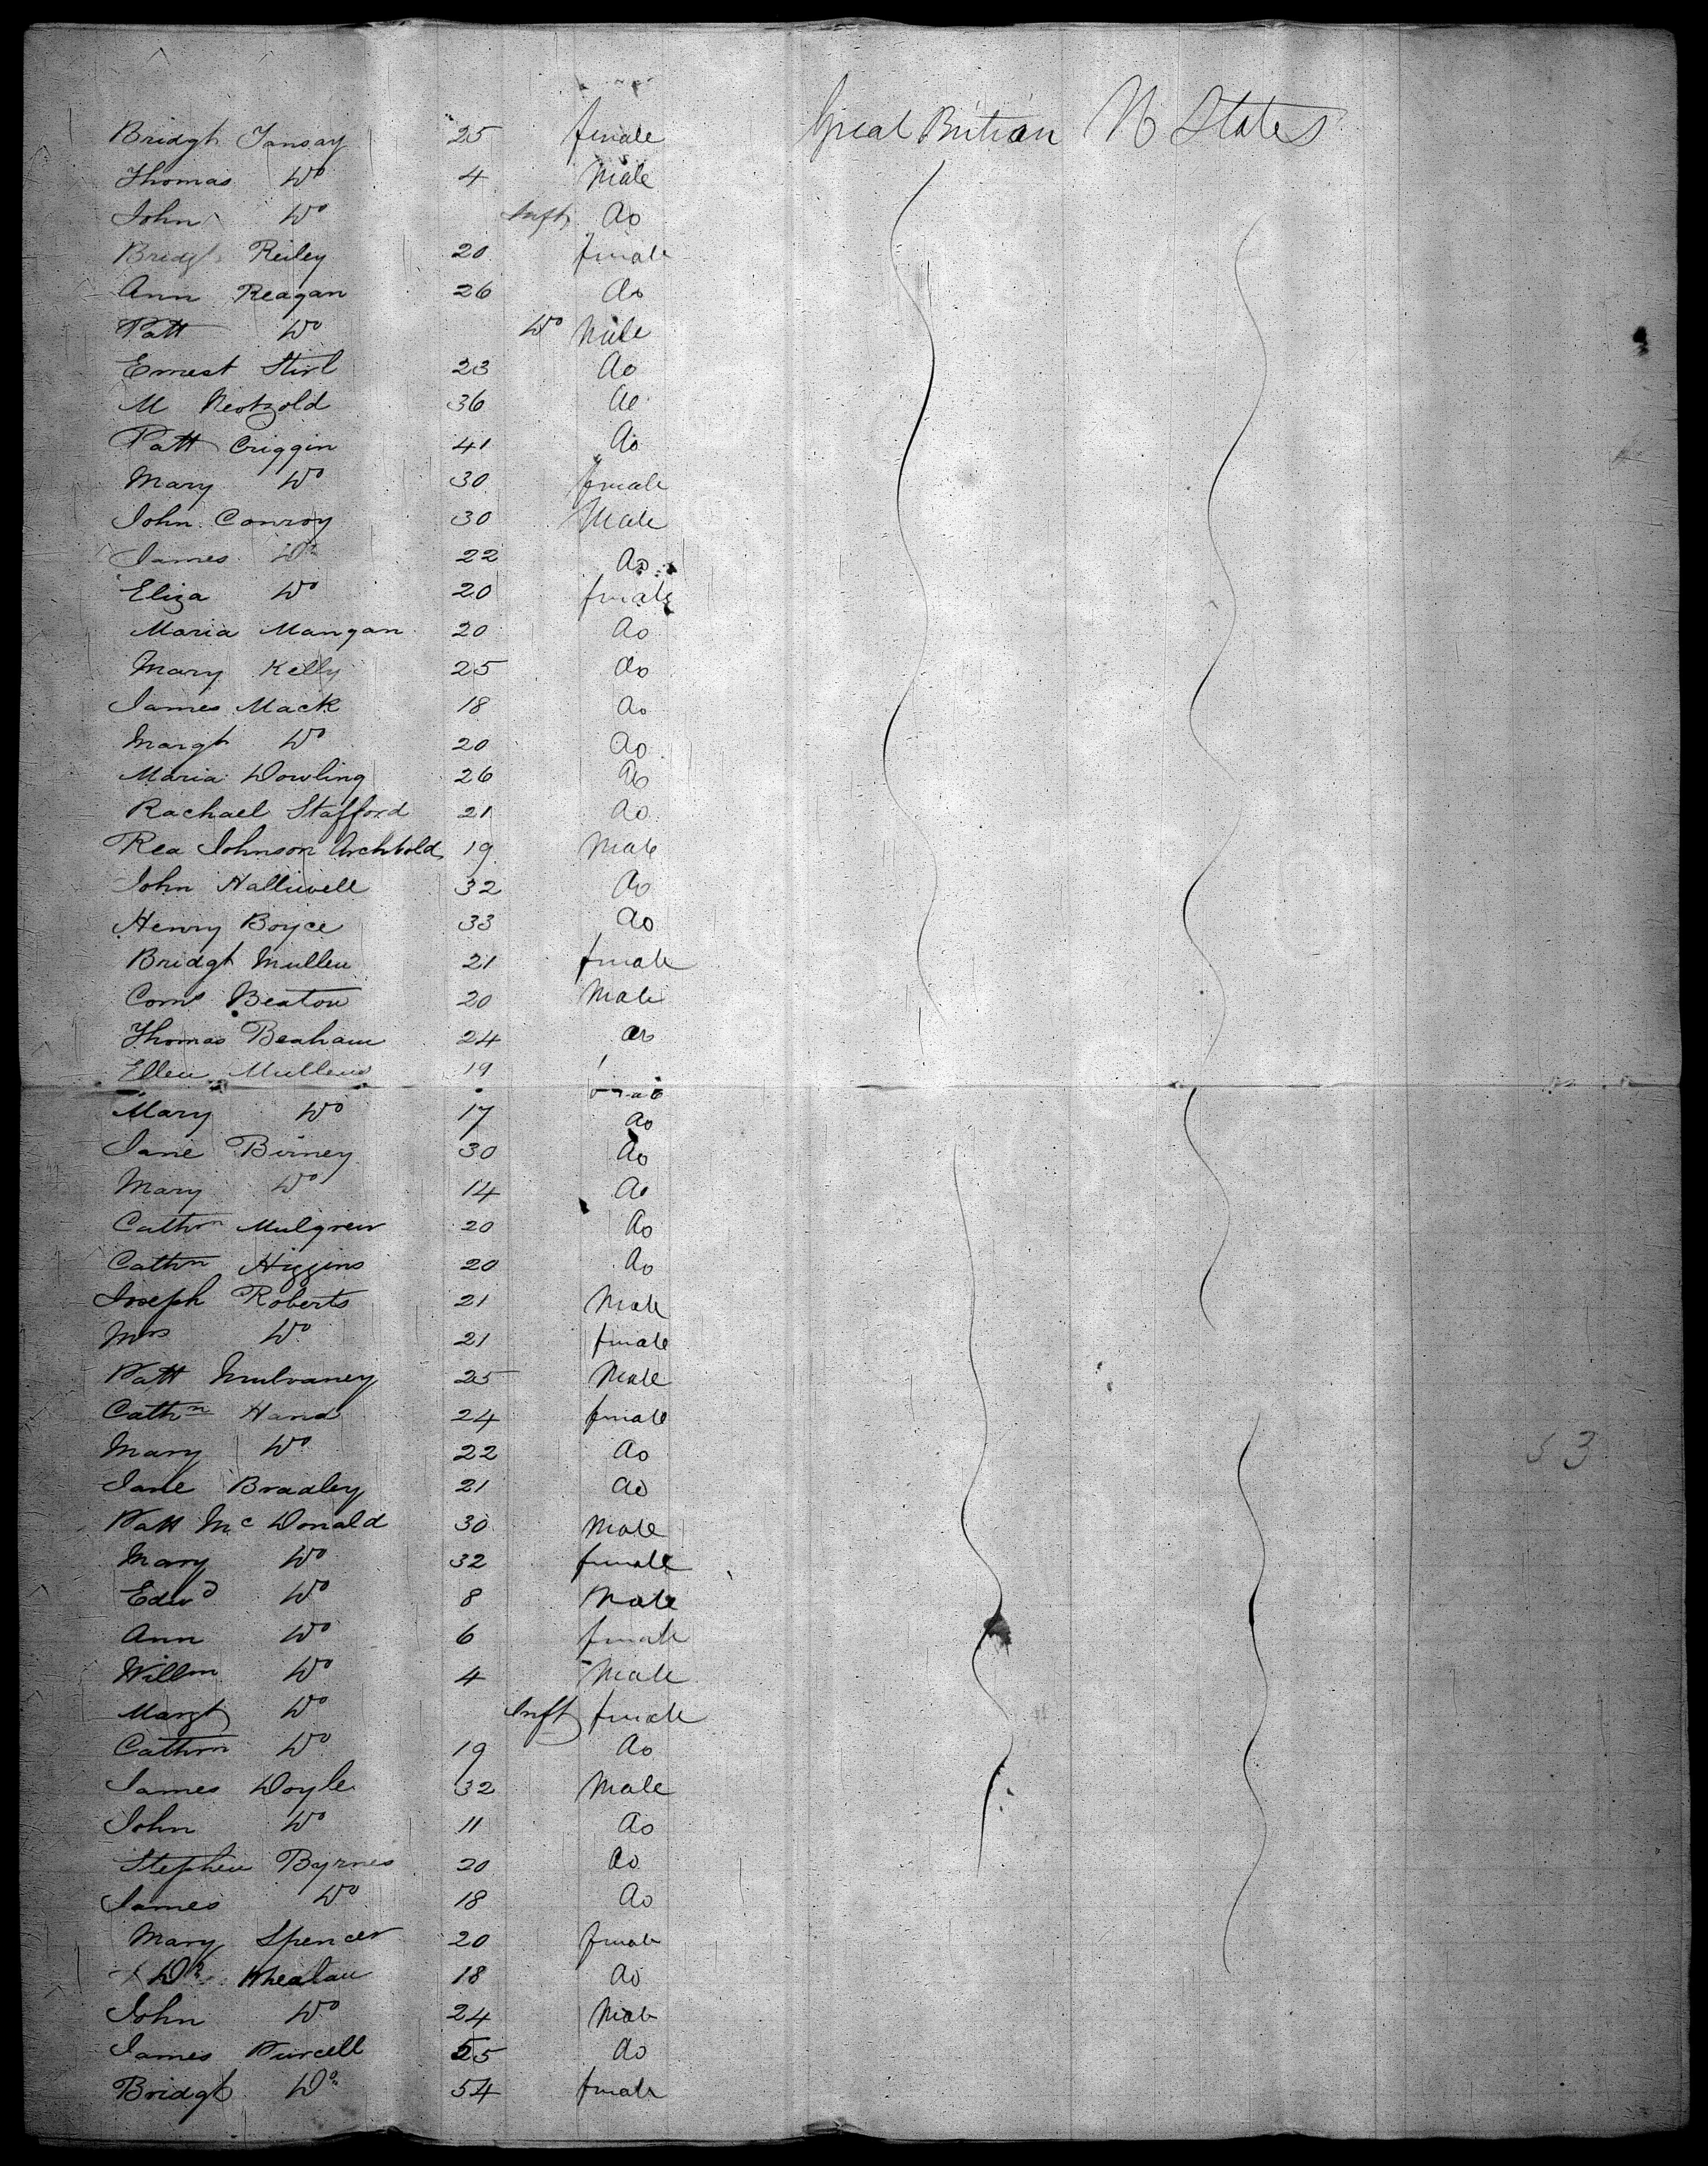 Bridgt Tansay 25 female Great Britian U States
Thomas Do 4 Male
John Do Inft do
Bridgt Reiley 20 female
Ann Reagan 26 do
Patt Do Do Male
Ernest Stirl 23 do
M Neotzold 36 do
Patt Criggin 41 do
Mary Do 30 female
John Conroy 30 Male
James Do 22 do
Eliza Do 20 female
Maria Mangan 20 do
Mary Kelly 25 do
James Mack 18 do
Margt Do 20 do
Maria Dowling 26 do
Rachael Stafford 21 do
Rea Johnson Archbold 19 Male
John Halliwell 32 do
Henry Boyce 33 do
Bridgt Mullen 21 female
Corns Beaton 20 Male
Thomas Beaham 24 do
Ellen Mullens 19
Mary Do 17 do
Jane Birney 30 do
Mary Do 14 do
Cathrn Mulgrew 20 do
Cathrn Higgins 20 do
Joseph Roberts 21 Male
Mrs Do 21 female
Patt Mulvaney 25 Male
Cathn Hand 24 female
Mary Do 22 do
Jane Bradley 21 do
Patt McDonald 30 Male
Mary Do 32 female
Edwd Do 8 Male
Ann Do 6 female
Willm Do 4 Male
Margt Do Inft female
Cathrn Do 19 do
James Doyle 32 Male
John Do 11 do
Stephen Byrnes 20 do
James Do 18 do
Mary Spencer 20 female
Do Whealan 18 do
John Do 24 Male
James Purcell 55 do
Bridgt Do 54 female